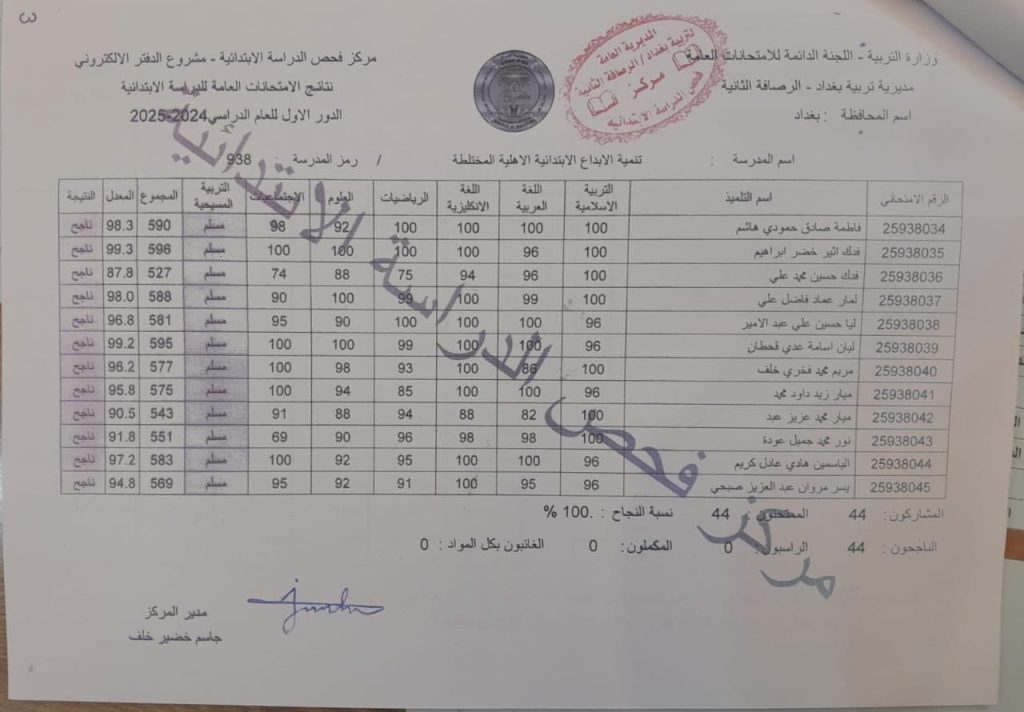 3
وزارة التربية - اللجنة الدائمة للامتحانات العامة
مديرية تربية بغداد - الرصافة الثانية
اسم المحافظة : بغداد
المديرية العامة
لتربية بغداد/الرصافة الثانية
مركز
فحص الدراسة الابتدائية
مركز فحص الدراسة الابتدائية - مشروع الدفتر الالكتروني
نتائج الامتحانات العامة للدراسة الابتدائية
الدور الاول للعام الدراسي 2024-2025
اسم المدرسة : تنمية الابداع الابتدائية الاهلية المختلطة / رمز المدرسة : 938
الرقم الامتحاني اسم التلميذ التربية الاسلامية اللغة العربية اللغة الانكليزية الرياضيات العلوم الاجتماعيات التربية المسيحية المجموع المعدل النتيجة
25938034 فاطمة صادق حمودي هاشم 100 100 100 100 92 98 مسلم 590 98.3 ناجح
25938035 فدك اثير خضر ابراهيم 100 96 100 100 100 100 مسلم 596 99.3 ناجح
25938036 فدك حسين محمد علي 100 96 94 75 88 74 مسلم 527 87.8 ناجح
25938037 لمار عماد فاضل علي 100 99 100 99 100 90 مسلم 588 98.0 ناجح
25938038 ليا حسين علي عبد الامير 96 100 100 100 90 95 مسلم 581 96.8 ناجح
25938039 ليان اسامة عدي قحطان 96 100 100 99 100 100 مسلم 595 99.2 ناجح
25938040 مريم محمد فخري خلف 100 86 100 93 98 100 مسلم 577 96.2 ناجح
25938041 ميار زيد داود محمد 96 100 100 85 94 100 مسلم 575 95.8 ناجح
25938042 ميار محمد عزيز عبد 100 82 88 94 88 91 مسلم 543 90.5 ناجح
25938043 نور محمد جميل عودة 100 98 98 96 90 69 مسلم 551 91.8 ناجح
25938044 الياسمين هادي عادل كريم 96 100 100 95 92 100 مسلم 583 97.2 ناجح
25938045 يسر مروان عبد العزيز صبحي 96 95 100 91 92 95 مسلم 569 94.8 ناجح
المشاركون: 44 الممتحنون: 44 نسبة النجاح : .100 %
الناجحون: 44 الراسبون: 0 المكملون: 0 الغائبون بكل المواد : 0
مركز فحص الدراسة الابتدائية
مدير المركز
جاسم خضير خلف